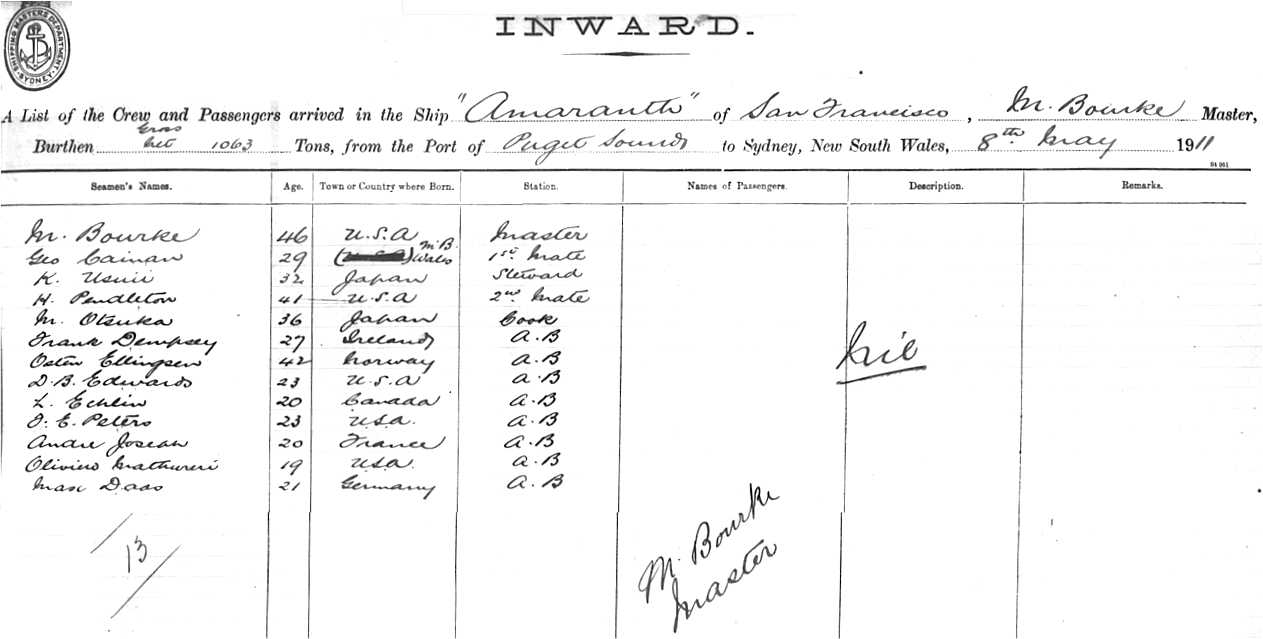 SHIPPING MASTERS DEPARTMENT. SYDNEY.
INWARD.
A List of the Crew and Passengers arrived in the Ship "Amaranth" of San Francisco, M. Bourke Master,
Gross
Burthen Net 1063 Tons, from the Port of Puget Sound to Sydney, New South Wales, 8th May 1911
Seamen's Names. Age. Town or Country where Born. Station. Names of Passengers. Description. Remarks.
M. Bourke 46 U.S.A Master
M.B.
Geo Cainan 29 (U.S.A) Wales 1st Mate
K. Usuii 32 Japan Steward
H. Pendleton 41 U.S.A 2nd Mate
M. Otsuka 36 Japan Cook
Frank Dempsey 27 Ireland A.B
Osten Ellingsen 42 Norway A.B
D.B. Edwards 23 U.S.A A.B
L. Echlin 20 Canada A.B
J. E. Peters 23 U.S.A. A.B
Andre Joseah 20 France A.B
Oliviero Mathureri 19 U.S.A. A.B
Max Daas 21 Germany A.B
Nil
13
M. Bourke
Master